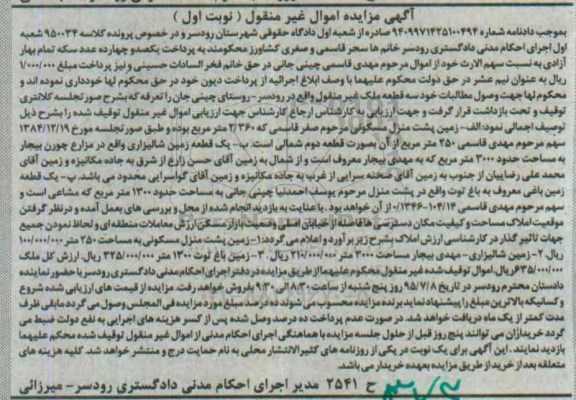 آگهی مزایده اموال غیر منقول ( نوبت اول )
بموجب دادنامه شماره ۹۴۰۹۹۷۱۴۲۵۱۰۰۴۹۴ صادره از شعبه اول دادگاه حقوقی شهرستان رودسر و در خصوص پرونده کلاسه ۹۵۰۰۳۴ شعبه
اول اجرای احکام مدنی دادگستری رودسر خانم ها سحر قاسمی و صغری کشاورز محکومند به پرداخت یکصد و چهارده عدد سکه تمام بهار
آزادی به نسبت سهم الارث خود از اموال مرحوم مهدی قاسمی چینی جانی در حق خانم فخر السادات حسینی و نیز پرداخت مبلغ ۱/۰۰۰/۰۰۰
ریال به عنوان نیم عشر در حق دولت محکوم علیهما با وصف ابلاغ اجرائیه از پرداخت دیون خود در حق محکوم لها خودداری نموده اند و
محکوم لها جهت وصول مطالبات خود سه قطعه ملک غیر منقول واقع در رودسر - روستای چینی جان را تعرفه که بشرح صورتجلسه کلانتری
توقیف و تحت بازداشت قرار گرفت و جهت ارزیابی به کارشناس ارجاع کارشناس جهت ارزیابی اموال غیر منقول توقیف شده را بشرح ذیل
توصیف اجمالی نمود: الف- زمین پشت منزل مسکونی مرحوم صفر قاسمی که ۲/۳۶۰ متر مربع بوده و طبق صورتجلسه مورخ ۱۳۸۴/۱۲/۱۹
سهم مرحوم مهدی قاسمی ۲۵۰ متر مربع از آن بصورت قطعه دوم شمالی است. ب- یک قطعه زمین شالیزاری واقع در مزارع چورن بیجار
به مساحت حدود ۳۰۰۰ متر مربع که به مهدی بیجار معروف است و از شمال به زمین آقای حسن زارع از شرق به جاده مکانیزه و زمین آقای
محمد علی رضاییان از جنوب به زمین آقای صحنه سرایی از غرب به جاده مکانیزه و زمین آقای گواسرایی محدود می باشد. پ- یک قطعه
زمین باغی معروف به باغ توت واقع در پشت منزل مرحوم یوسف احمدنیا چینی جانی به مساحت حدود ۱۳۰۰ متر مربع که مشاعی است و
سهم مرحوم مهدی قاسمی ۱۰۴/۱۴-۰/۱۳۴۶ از آن خواهد بود. با عنایت به بازدید انجام شده از محل و بررسی های بعمل آمده و در نظر گرفتن
موقعیت املاک مساحت و کیفیت مکان دسترسی ها فاصله از خیابان اصلی وضعیت بازار مسکن ارزش معاملات منطقه ای و لحاظ نمودن جمیع
جهات تاثیر گذار در کارشناسی ارزش املاک بشرح زیر برآورد و اعلام می گردد: ۱- زمین پشت منزل مسکونی به مساحت ۲۵۰ متر ۱۰۰/۰۰۰/۰۰۰
ریال. ۲- زمین شالیزاری - مهدی بیجار مساحت ۳۰۰۰ متر ۲۱۰/۰۰۰/۰۰۰ ریال. ۳- زمین باغ توت ۱۳۰۰ متر ۳۲۵/۰۰۰/۰۰۰ ریال. ارزش کل ملک
۶۳۵/۰۰۰/۰۰۰ ریال. اموال توقیف شده غیر منقول محکوم علیهما از طریق مزایده در دفتر اجرای احکام مدنی دادگستری رودسر با حضور نماینده
دادستان محترم رودسر در تاریخ ۹۵/۷/۸ روز پنج شنبه از ساعت ۸/۳۰ الی ۹/۳۰ بفروش خواهد رفت. مزایده از قیمت های ارزیابی شده شروع
و کسانیکه بالاترین مبلغ را پیشنهاد نماید برنده مزایده محسوب می شوند ده درصد مبلغ مورد مزایده فی المجلس وصول می گردد مابقی ظرف
مدت کمتر از یک ماه دریافت خواهد شد. در صورت عدم پرداخت ده درصد وصل شده پس از کسر هزینه های اجرایی به نفع دولت ضبط می
گردد خریداران می توانند پنج روز قبل از حلول جلسه مزایده با هماهنگی اجرای احکام مدنی از اموال غیر منقول توقیف شده محکم علیهما
بازدید نمایند. این آگهی برای یک نوبت در یکی از روزنامه های کثیر الانتشار محلی به نام حمایت درج و منتشر خواهد شد. کلیه هزینه های
متعلقه بعد از خرید از طریق مزایده بعهده خریدار می باشد.
ح ۲۵۴۱ مدیر اجرای احکام مدنی دادگستری رودسر - میرزائی